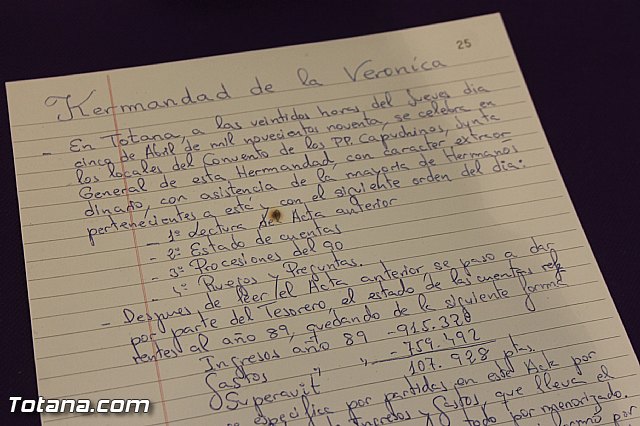 25
Hermandad de la Veronica
- En Totana, a las veintidos horas del Jueves dia
cinco de Abril de mil novecientos noventa, se celebra en
los locales del Convento de los PP. Capuchinos, Junta
General de esta Hermandad, con caracter extraor
dinario, con asistencia de la mayoria de Hermanos
pertenecientes a está y con el siguiente orden del dia:
- 1º Lectura del Acta anterior
- 2º Estado de cuentas
- 3º Procesiones del 90
- 4º Ruegos y Preguntas.
- Despues de leer el Acta anterior se paso a dar
por parte del Tesorero, el estado de las cuentas refe
rentes al año 89, quedando de la siguiente forma
Ingresos año 89 - 915.320
Gastos " " - 759.492
Superavit 107.928 ptas.
especifica por partidas en este Acta por
Ingresos y Gastos, que lleva el
todo por menorizado.
por
Totana.com